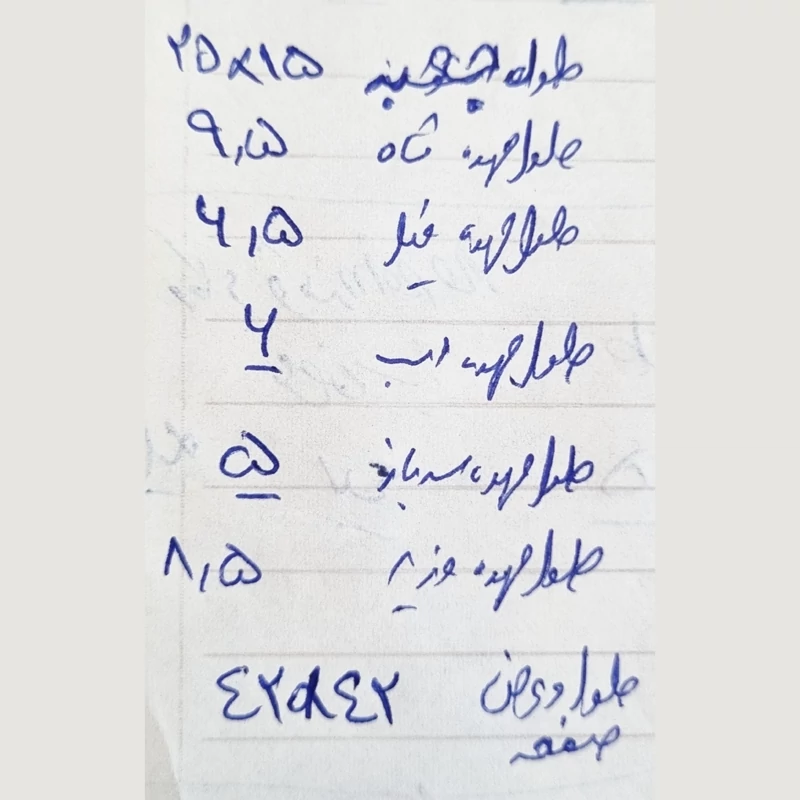 طول مهره شاه ۹,۵
طول مهره فیل ۶,۵
طول مهره اسب ۶
طول مهره سرباز ۵
طول مهره وزیر ۸,۵
طول و عرض ۴۲×۴۲
صفحه